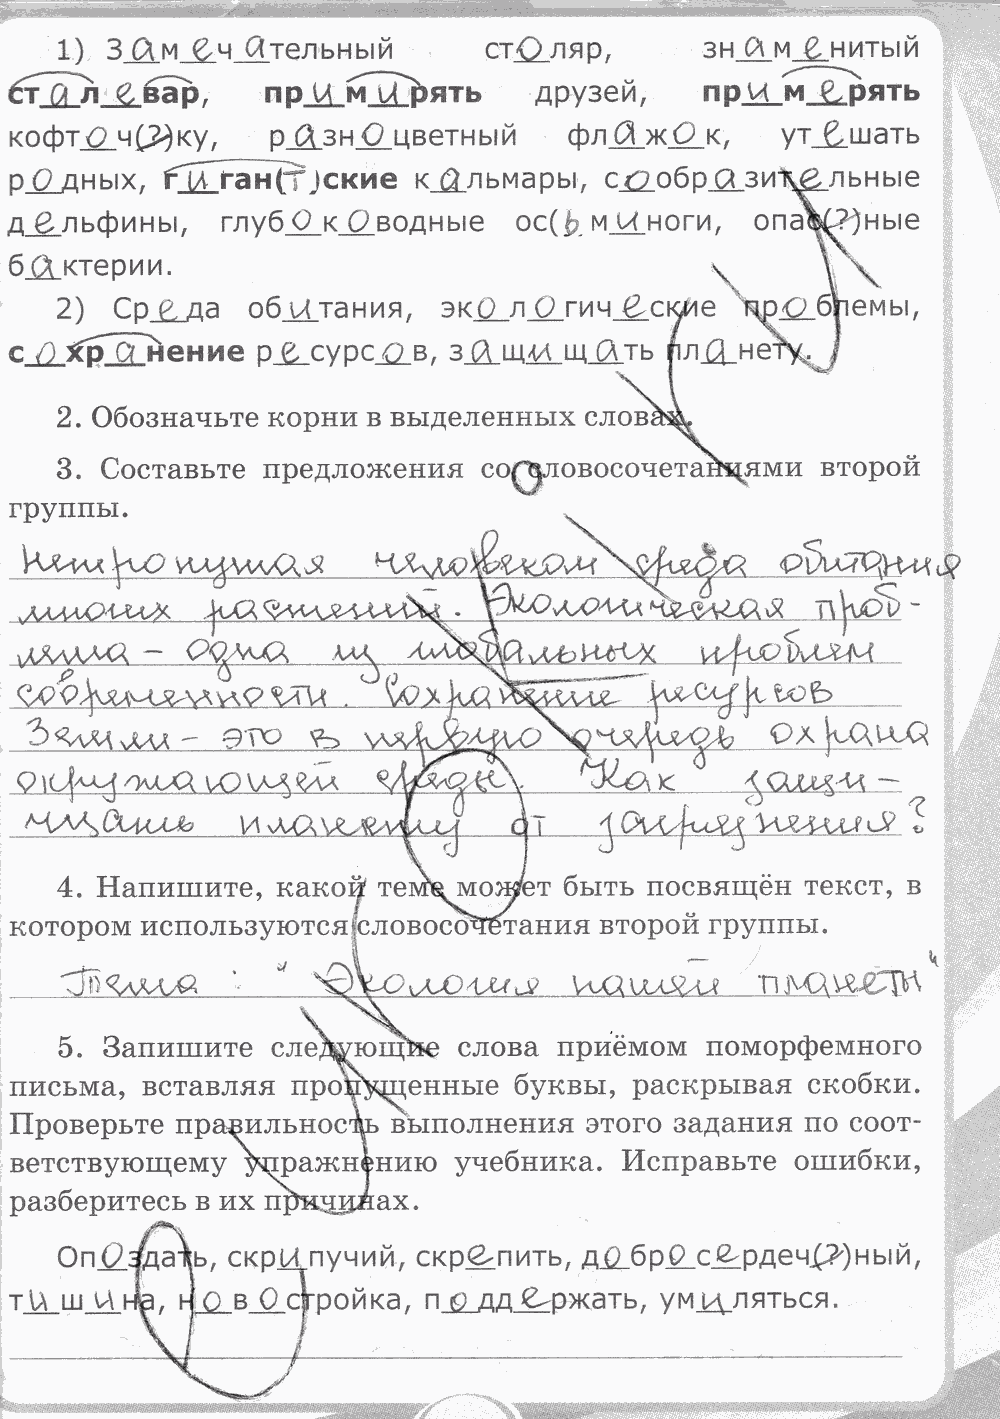 1) Замечательный столяр, знаменитый
сталевар, примирять друзей, примерять
кофточ(?)ку, разноцветный флажок, утешать
родных, гиган(т)ские кальмары, сообразительные
дельфины, глубоководные ос(ь)миноги, опас(?)ные
бактерии.
2) Среда обитания, экологические проблемы,
сохранение ресурсов, защищать планету.
2. Обозначьте корни в выделенных словах.
3. Составьте предложения со словосочетаниями второй
группы.
Нетронутая человеком среда обитания
многих растений. Экологическая проб-
лема – одна из глобальных проблем
современности. Сохранение ресурсов
Земли – это в первую очередь охрана
окружающей среды. Как защи-
щать планету от загрязнения?
4. Напишите, какой теме может быть посвящён текст, в
котором используются словосочетания второй группы.
Тема: "Экология нашей планеты"
5. Запишите следующие слова приёмом поморфемного
письма, вставляя пропущенные буквы, раскрывая скобки.
Проверьте правильность выполнения этого задания по соот-
ветствующему упражнению учебника. Исправьте ошибки,
разберитесь в их причинах.
Опоздать, скрипучий, скрепить, добросердеч(?)ный,
тишина, новостройка, поддержать, умиляться.